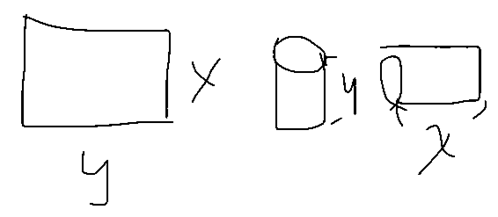 x
y
y
x